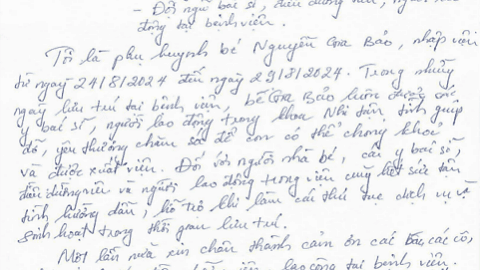 - Đội ngũ bác sĩ, điều dưỡng viên, người
động tại bệnh viện.
Tôi là phụ huynh bé Nguyễn Gia Bảo, nhập viện
từ ngày 24/8/2024 đến ngày 29/8/2024. Trong những
ngày lưu trú tại bệnh viện, bé Gia Bảo luôn được các
y bác sĩ, người lao động trong khoa Nhi tận tình giúp
đỡ, yêu thương chăm sóc để con có thể chóng khỏi
và được xuất viện. Đối với người nhà bé, các y bác sĩ,
điều dưỡng viên và người lao động trong viện cũng hết sức tận
tình hướng dẫn, hỗ trợ khi làm các thủ tục dịch vụ và
sinh hoạt trong thời gian lưu trú.
Một lần nữa xin chân thành cảm ơn các bác, các cô,
viên, lao công tại bệnh viện.